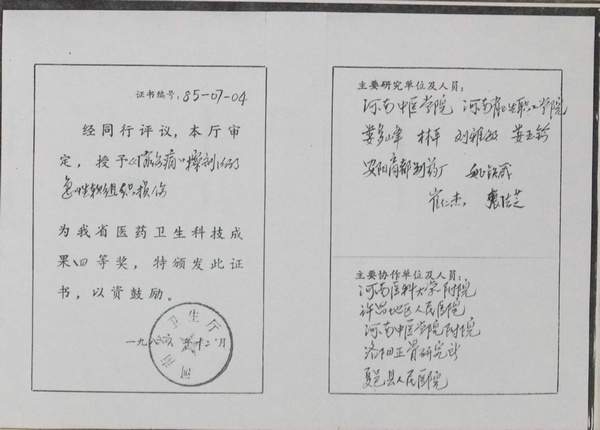 证书编号:85-07-04
经同行评议,本厅审
定,授予
急性软组织损伤
为我省医药卫生科技成
果四等奖,特颁发此证
书,以资鼓励。
河南省卫生厅
一九八六年十二月
主要研究单位及人员:
河南中医学院 河南省卫生职工学院
娄多峰 林萍 刘雅敏 娄玉钤
安阳商都制药厂
崔仁杰
主要协作单位及人员:
河南医科大学附院
许昌地区人民医院
河南中医学院附院
洛阳正骨研究所
夏邑县人民医院